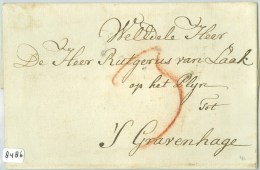 WelEdele Heer
De Heer Rutgerus van Laak
op het Plijn
Tot
'S Gravenhage
3
8486